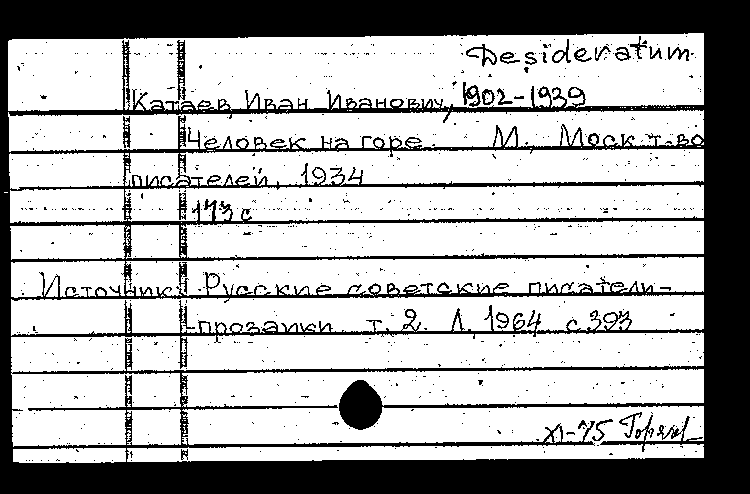 Desideratum
Катаев, Иван Иванович, 1902-1939
Человек на горе. М., Моск. т-во
писателей, 1934
173 с
Источник: Русские советские писатели-
-прозаики т. 2. Л. 1964 с 393
XI-75